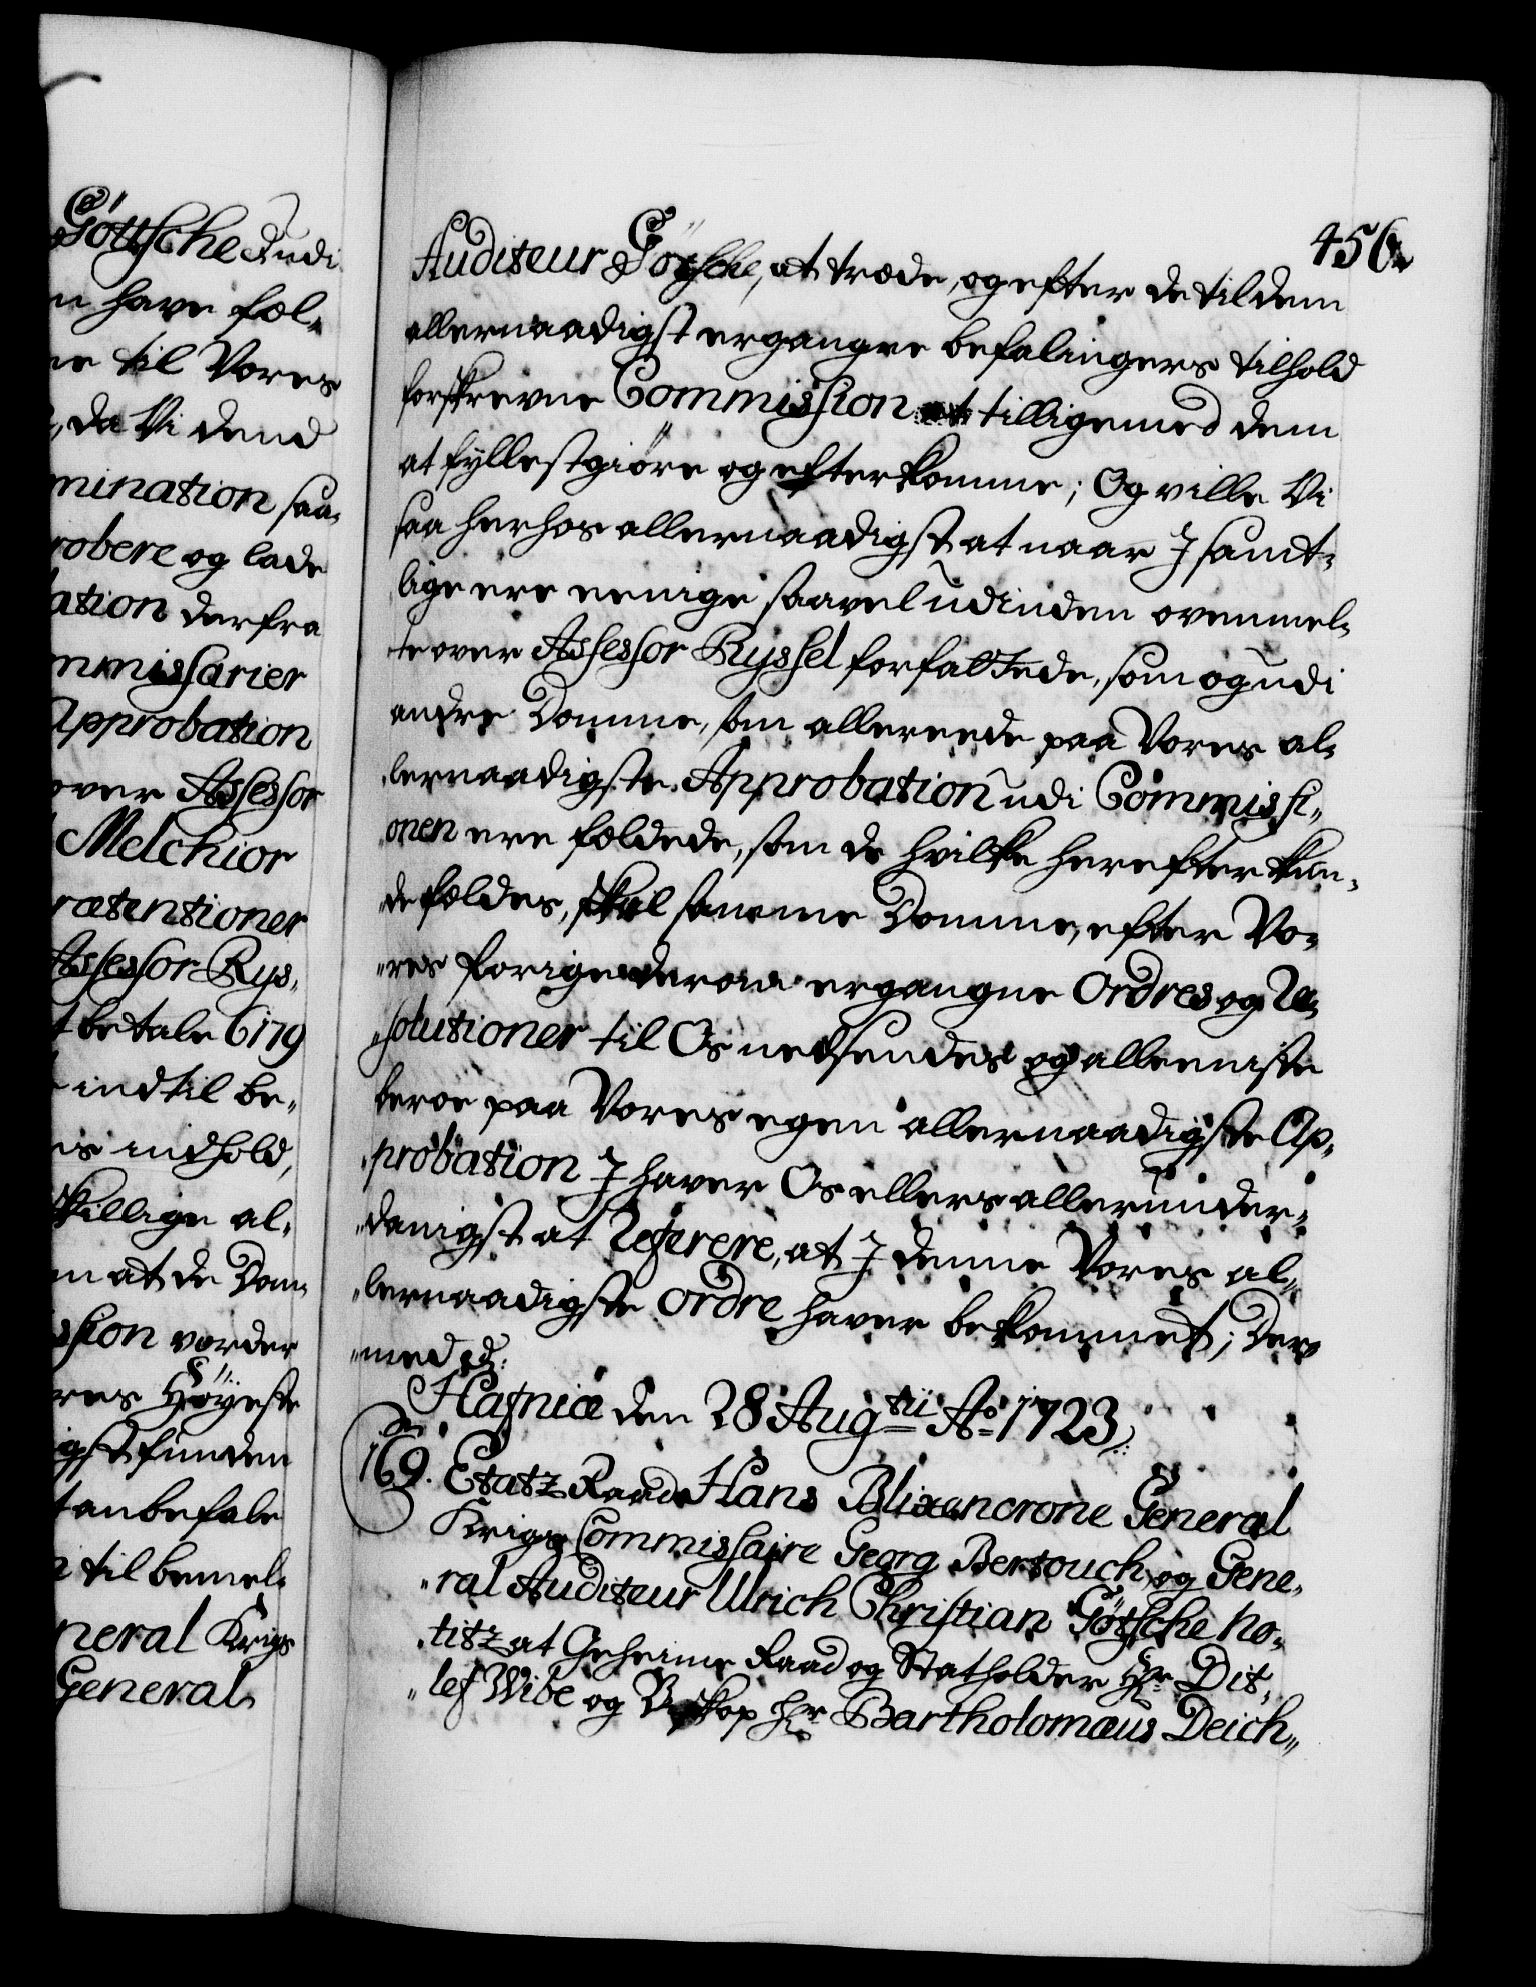 Göttsche Audi
n have fol„
ne til Vores
, da Vi dend
mination saa„
robere og lade
ation derfra
mmissarier
Approbation
over Assessor
Melchior
rætentioner
Assessor Rys„
t betale 6179
indtil be„
is indhold,
skillige al„
m at de Dom„
ssion vorder
res Höyeste
igst funden
t anbefale
i til bemel„
neral Krigs
General
456
Auditeur Götsche, at træde, og efter de til dem
allernaadigst ergangne befalingers tilhold
forskrevne Commission at tilligemed dem
at fyllestgiöre og efterkomme; Og ville Vi
saa herhos allernaadigst at naar I samt„
lige ere eenige saavel udi inden ovenmel„
te over Assessor Ryssel forfattede, som og udi
andre Domme, som allereede paa Vores al„
lernaadigste Approbation udi Commissi„
onen ere fældede, som de hvilke herefter kun„
de fældes, skal samme Domme, efter Vo„
res forige derom ergangne Ordres og Re„
solutioner til Os nedsendes og alleeniste
beroe paa Vores egen allernaadigste Ap„
probation I haver Os ellers allerunder„
danigst at Referere, at I denne Vores al„
lernaadigste Ordre haver bekommet; Der„
med etc:
Hafniæ den 28 Augtii Ao 1723
169. Etatz Raad Hans Blixencrone General
Krigs Commissaire Georg Bertouch og Gene„
ral Auditeur Ulrich Christian Götsche no„
titz at Geheime Raad og Statholder Hr Dit„
lef Wibe og Biskop Hr Bartholomæus Deich„